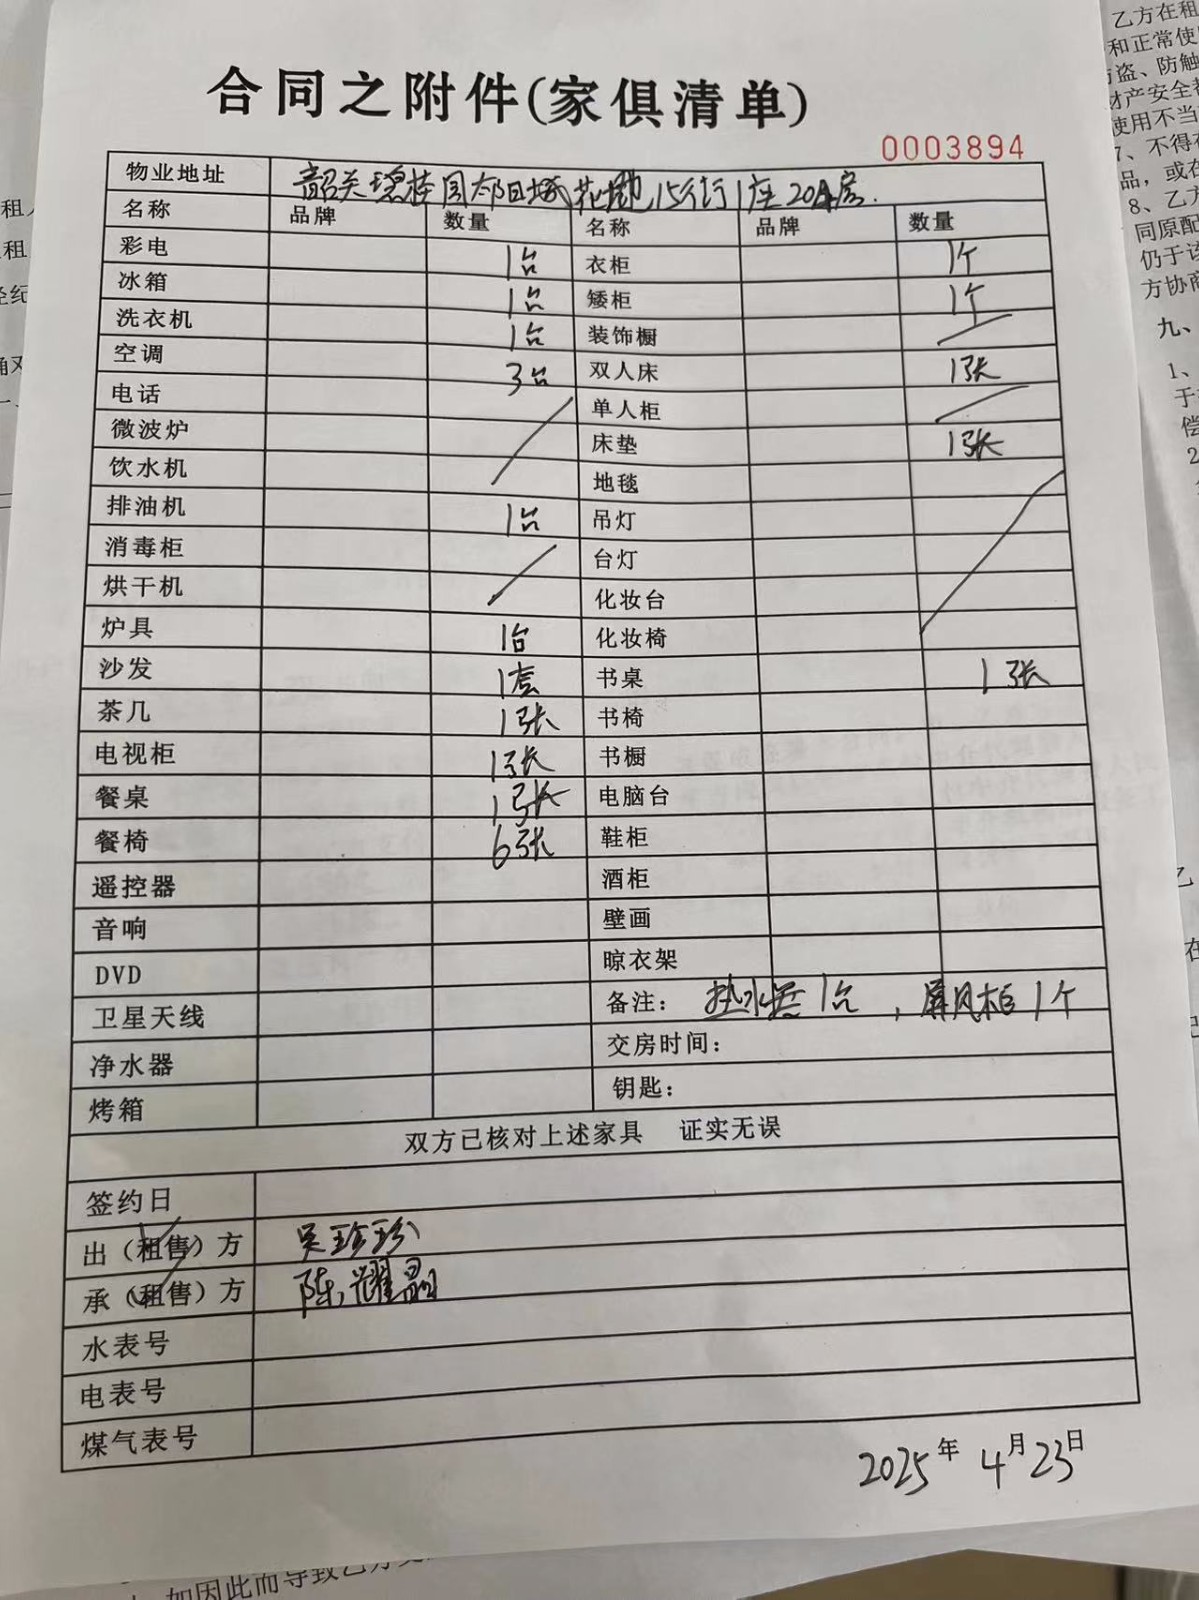 合同之附件(家俱清单)
0003894
物业地址 韶关碧桂园太阳城花地15街1座204房.
名称 品牌 数量 名称 品牌 数量
彩电 1台 衣柜 1个
冰箱 1台 矮柜 1个
洗衣机 1台 装饰橱
空调 3台 双人床 1张
电话 单人柜
微波炉 床垫 1张
饮水机 地毯
排油机 1台 吊灯
消毒柜 台灯
烘干机 化妆台
炉具 1台 化妆椅
沙发 1套 书桌 1张
茶几 1张 书椅
电视柜 1张 书橱
餐桌 1张 电脑台
餐椅 6张 鞋柜
遥控器 酒柜
音响 壁画
DVD 晾衣架
卫星天线 备注: 热水器1台,屏风柜1个
净水器 交房时间:
烤箱 钥匙:
双方已核对上述家具 证实无误
签约日
出(租售)方 吴珍珍
承(租售)方 陈耀
水表号
电表号
煤气表号
2025年4月23日
乙方在租
和正常使
盗、防触
财产安全
使用不当
7、不得
品,或在
8、乙方
同原配
仍于该
方协商
九、
1、
于
偿
2
如因此而导致乙方